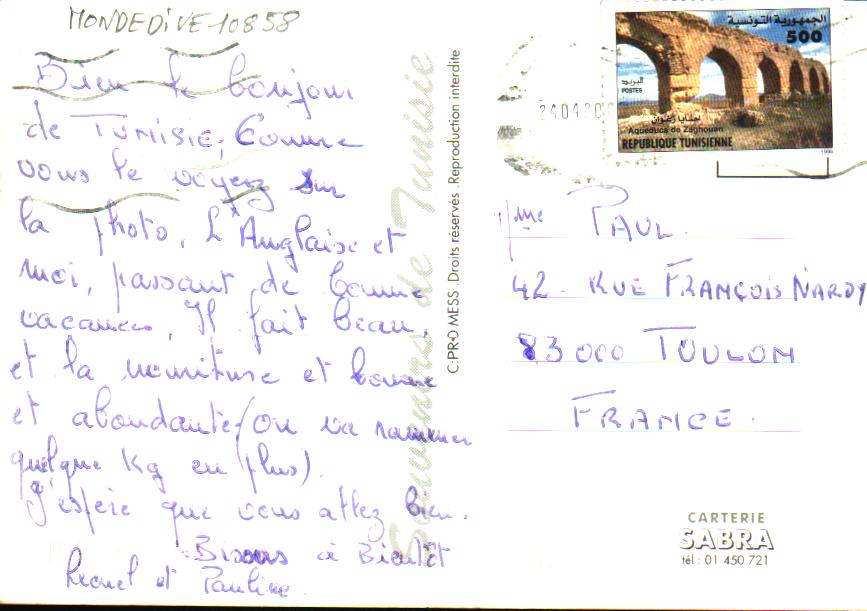 MONDEDIVE10858
Bien le bonjour
de TUNISIE, Comme
vous le voyez sur
la photo, L'Anglaise et
moi, passont de bonne
vacances, Il fait beau,
et la nourriture et bonne
et abondante (on va ramener
quelque Kg en plus).
J'espère que vous allez bien.
Bisous à Bientôt
et Pauline.
Souvenirs de Tunisie
C:PRO MESS .Droits réservés .Reproduction interdite
الجمهورية التونسية
500
البريد
POSTES
حنايا زغوان
Aqueducs de Zaghouan
REPUBLIQUE TUNISIENNE
24.04.00
Mme PAUL.
42. RUE FRANÇOIS NARDY
83000 TOULON
FRANCE.
CARTERIE
SABRA
tél : 01 450 721